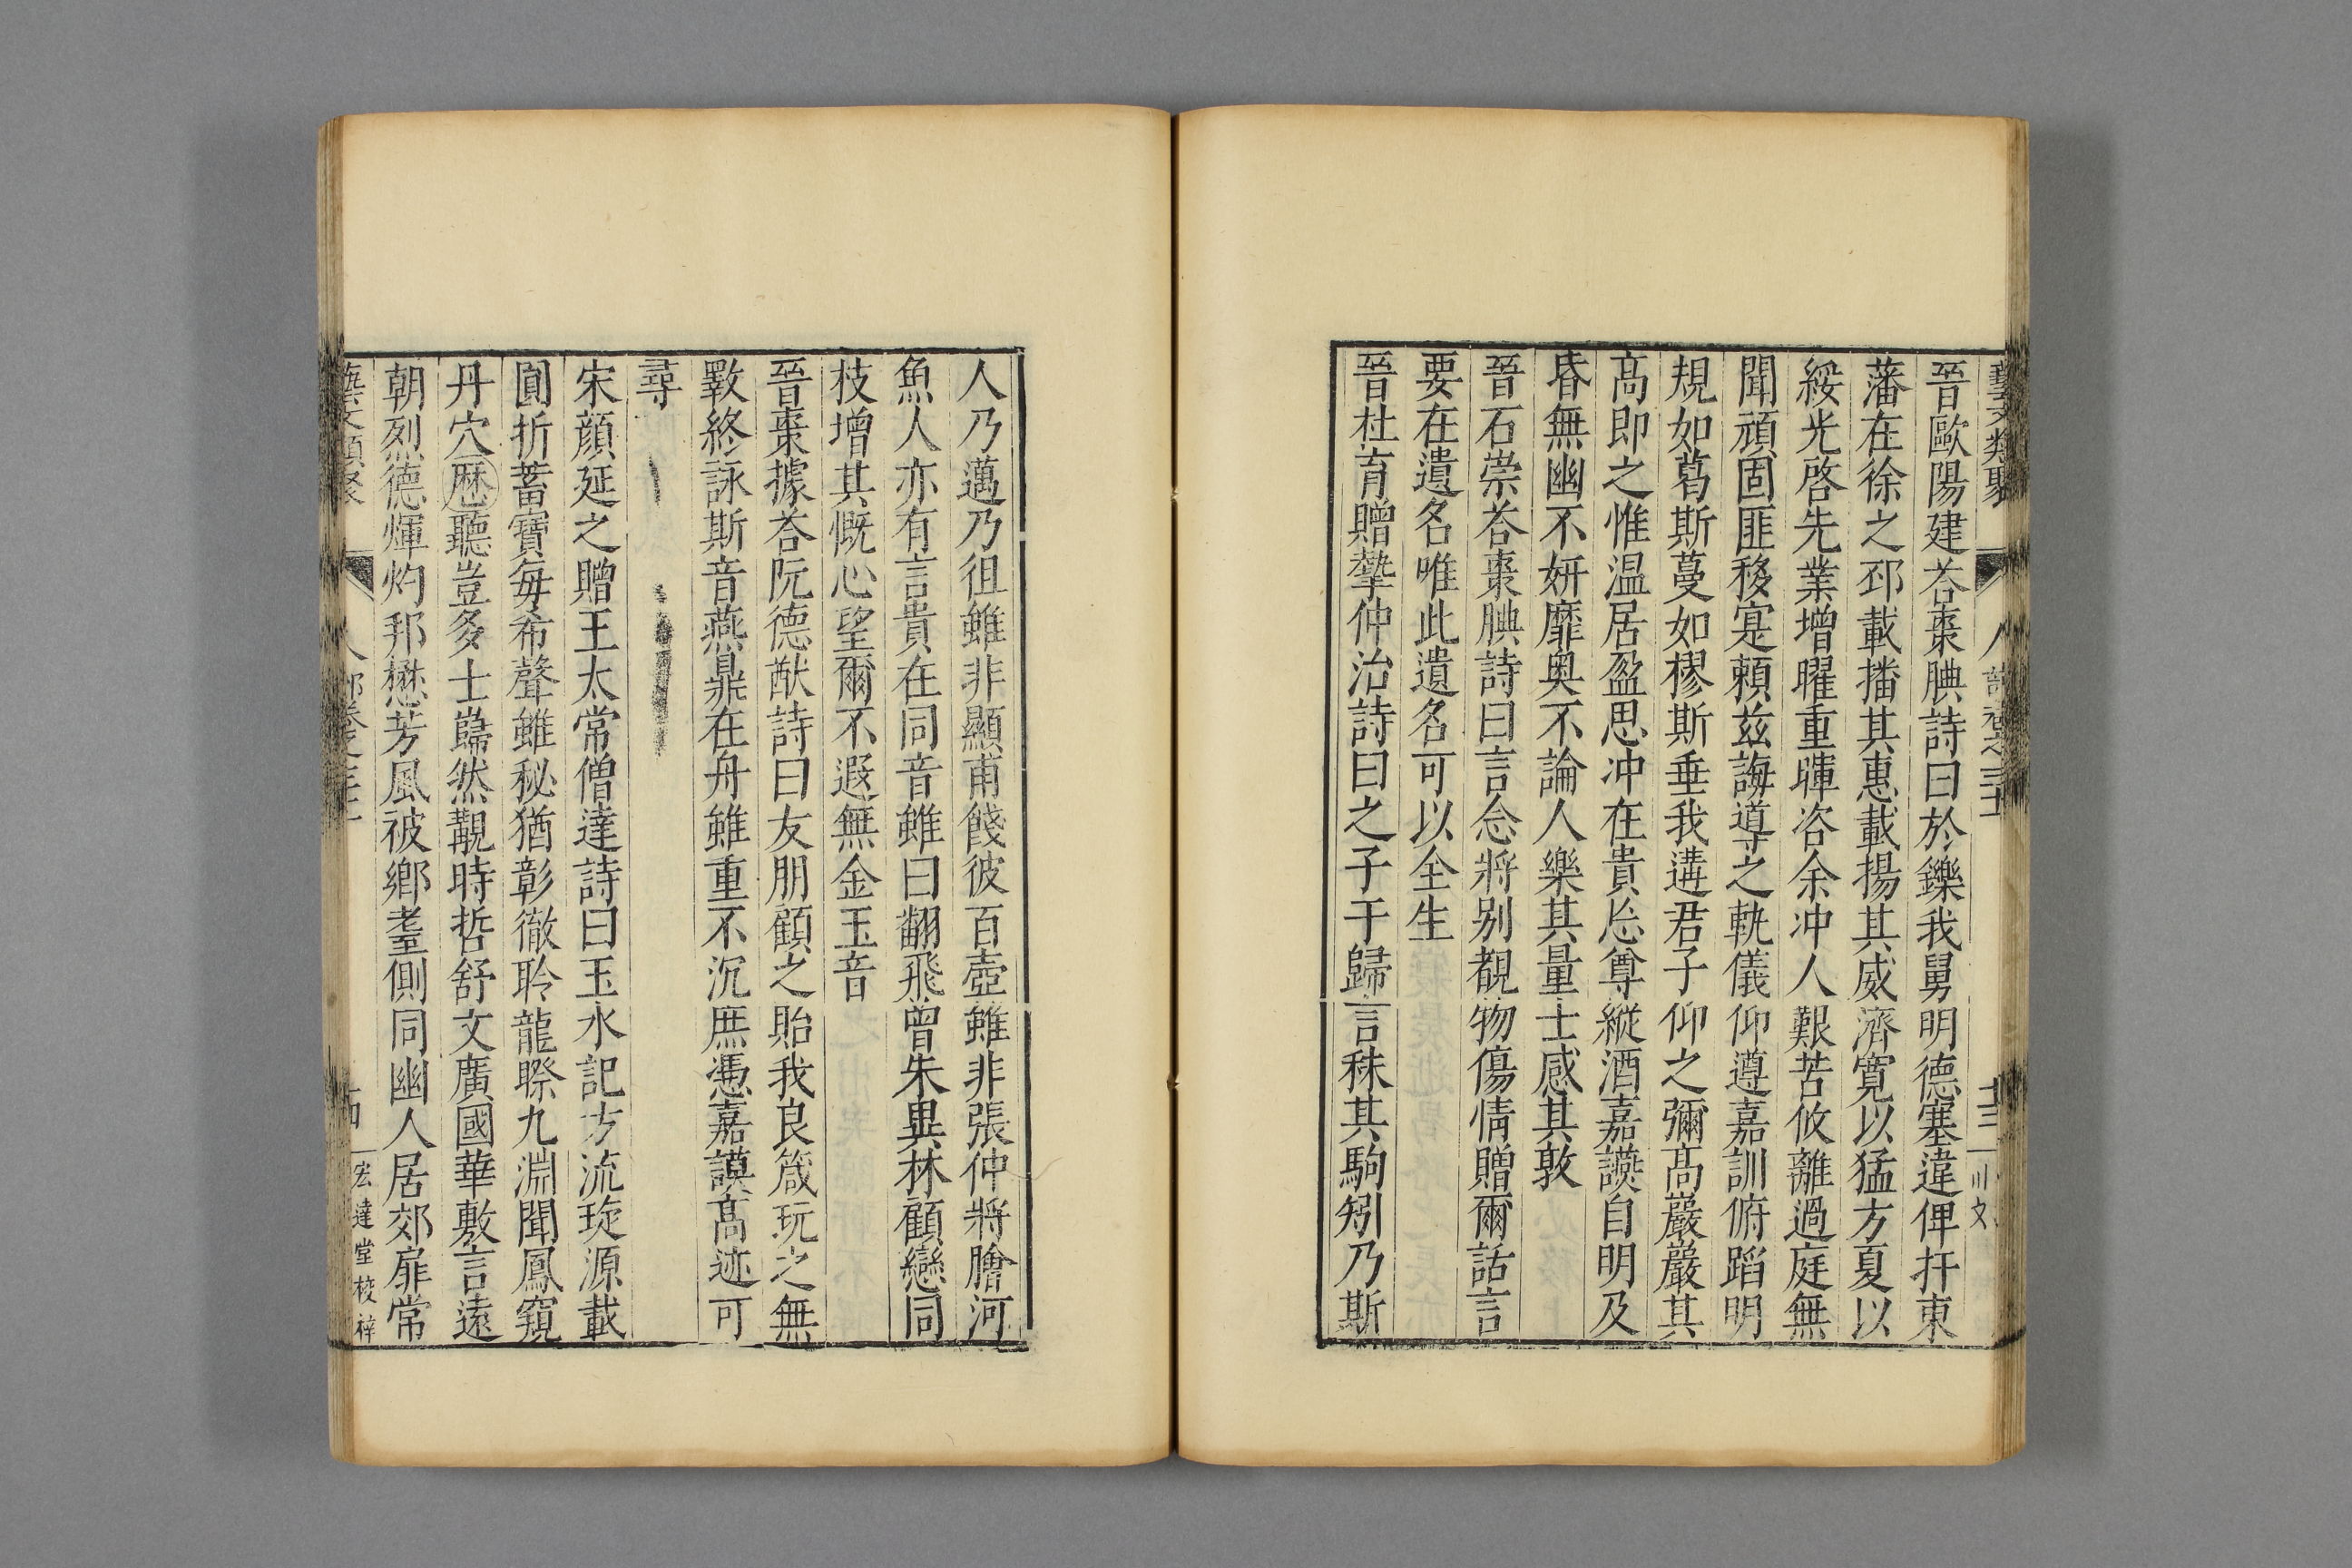 晉歐陽建荅棗腆詩曰於鑠我舅明德塞違俾扞東
藩在徐之邳載播其惠載揚其威濟寬以猛方夏以
綏光啓先業增曜重暉咨余冲人艱苦攸離過庭無
聞頑固匪移寔賴茲誨導之軌儀仰遵嘉訓俯蹈明
規如葛斯蔓如樛斯垂我遘君子仰之彌髙嚴嚴其
髙即之惟温居盈思冲在貴忘尊縱酒嘉讌自明及
昏無幽不妍靡奥不論人樂其量士感其敦
晉石崇荅棗腆詩曰言念將别覩物傷情贈爾話言
要在遺名唯此遺名可以全生
晉杜育贈摯仲治詩曰之子于歸言秣其駒矧乃斯
人乃邁乃徂雖非顯甫餞彼百壺雖非張仲將膾河
魚人亦有言貴在同音雖曰翻飛曾未異林顧戀同
枝增其慨心望爾不遐無金玉音
晉棗據荅阮德猷詩曰友朋顧之貽我良箴玩之無
斁終詠斯音燕鼎在舟雖重不沉庶憑嘉謨髙迹可
尋
宋顔延之贈王太常僧達詩曰玉水記方流琁源載
圓折蓄寶每希聲雖秘猶彰徹聆龍睽九淵聞鳳窺
丹穴歴聽豈多士巋然覯時哲舒文廣國華敷言遠
朝烈德煇灼邦懋芳風被鄉耋側同幽人居郊扉常
宏達堂校梓